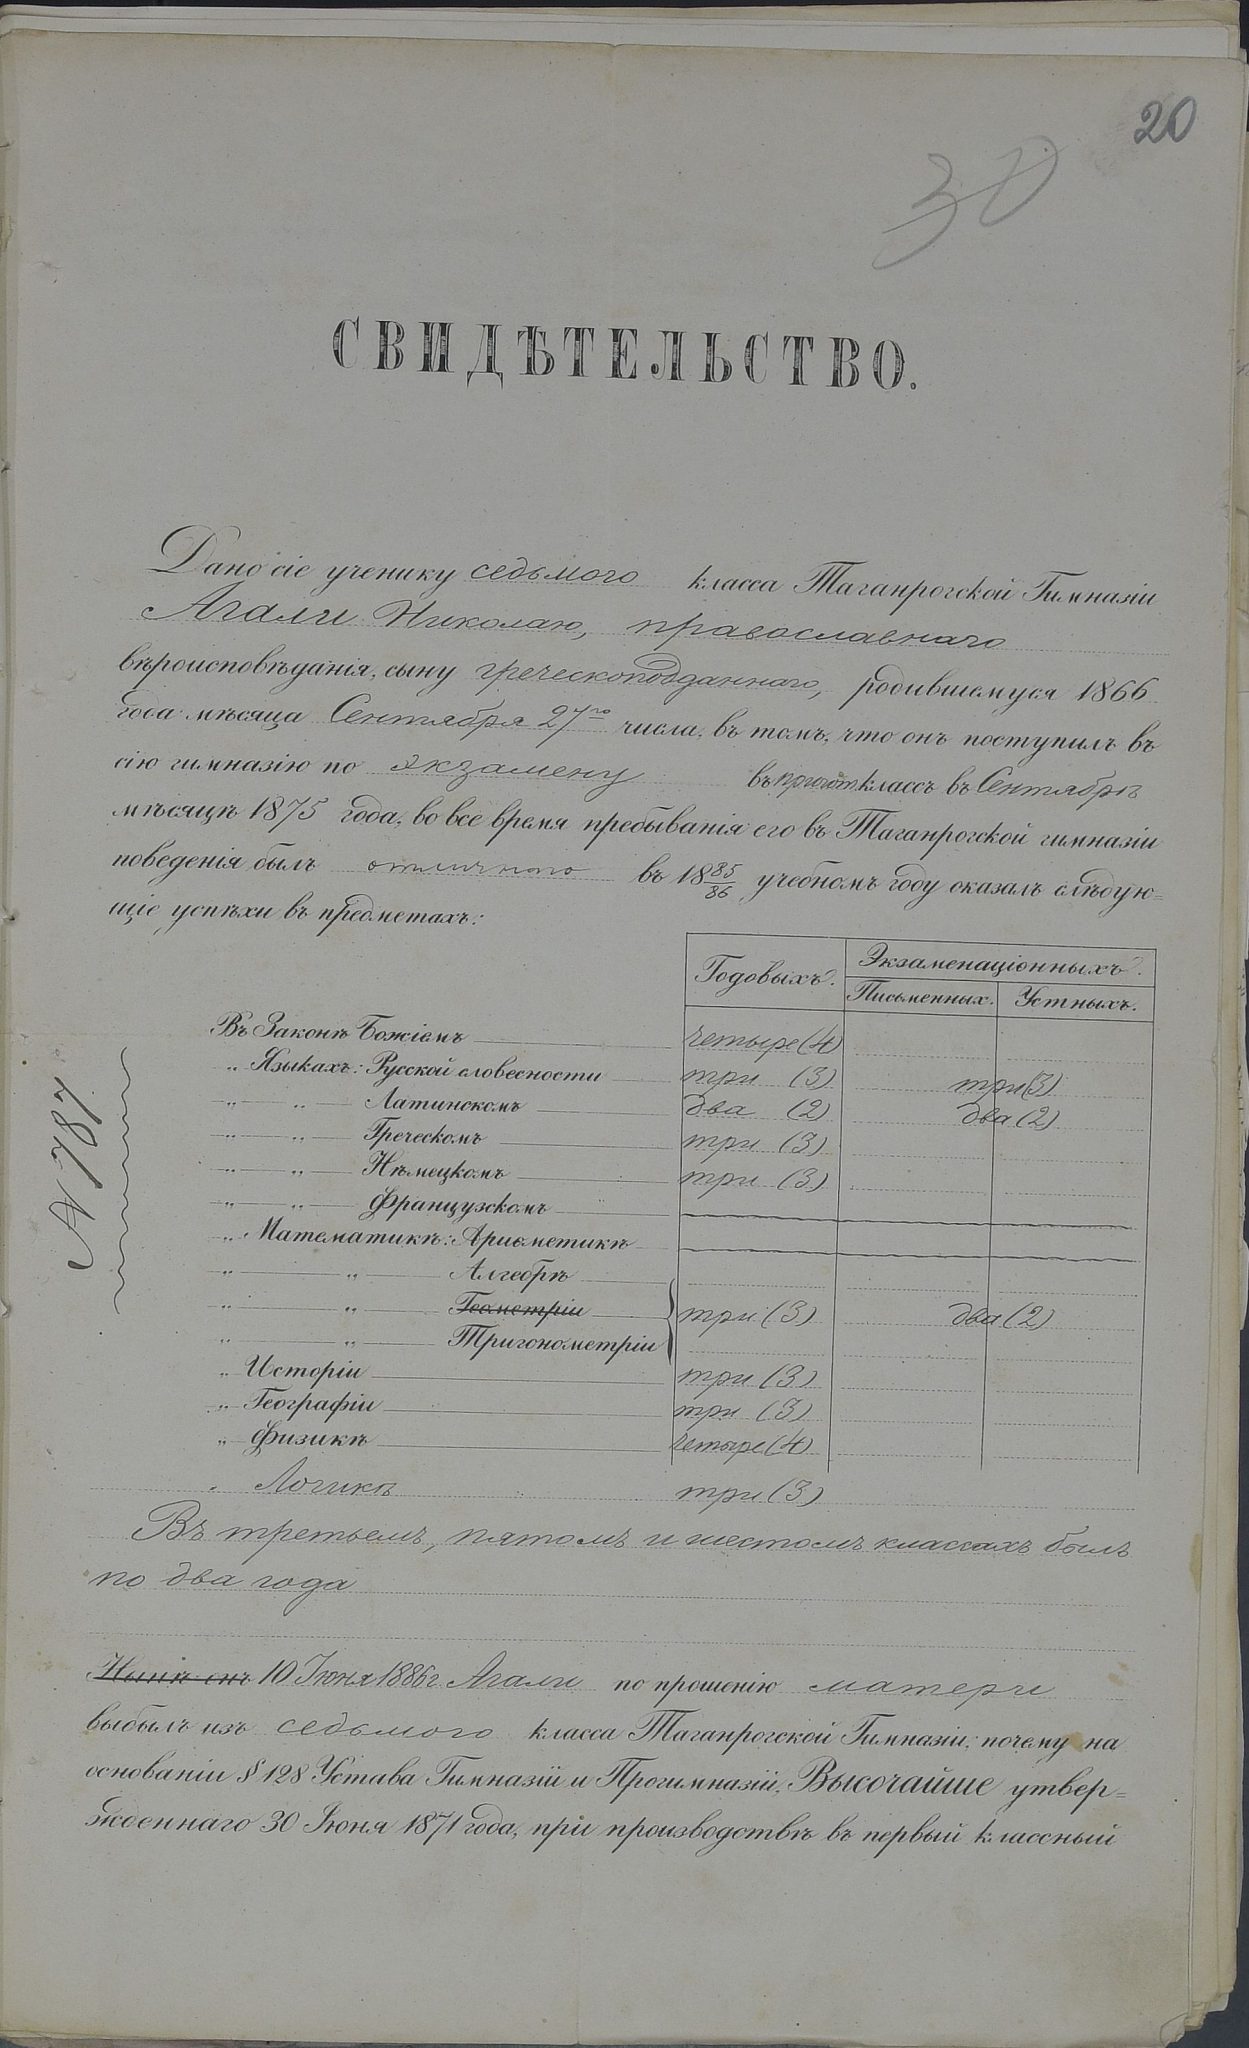 20
30
СВИДѢТЕЛЬСТВО.
Дано сіе ученику седьмого класса Таганрогской Гимназіи
Агали Николаю, православнаго
вѣроисповѣданія, сыну греческоподданнаго, родившемуся 1866
года мѣсяца Сентября 27го числа, въ томъ, что онъ поступилъ въ
сію гимназію по экзамену въ пригот. классъ въ Сентябрѣ
мѣсяцѣ 1875 года, во все время пребыванія его въ Таганрогской гимназіи
поведенія былъ отличнаго въ 18 85/86 учебномъ году оказалъ слѣдую=
щіе успѣхи въ предметахъ:
Годовыхъ. Экзаменаціонныхъ.
Письменных. Устныхъ.
Въ Законѣ Божіемъ четыре (4)
„ Языкахъ: Русской словесности три (3) три (3)
„ „ Латинскомъ два (2) два (2)
„ „ Греческомъ три (3)
„ „ Нѣмецкомъ три (3)
„ „ Французскомъ
„ Математикѣ: Ариѳметикѣ
„ „ Алгебрѣ
„ „ Геометріи три (3) два (2)
„ „ Тригонометріи
„ Исторіи три (3)
„ Географіи три (3)
„ Физикѣ четыре (4)
„ Логикѣ три (3)
Въ третьемъ, пятомъ и шестомъ классахъ былъ
по два года
Нынѣ онъ 10 Іюня 1886 г. Агали по прошенію матери
выбылъ изъ седьмого класса Таганрогской Гимназіи; почему на
основаніи § 128 Устава Гимназій и Прогимназій, Высочайше утвер=
жденнаго 30 Іюня 1871 года, при производствѣ въ первый классный